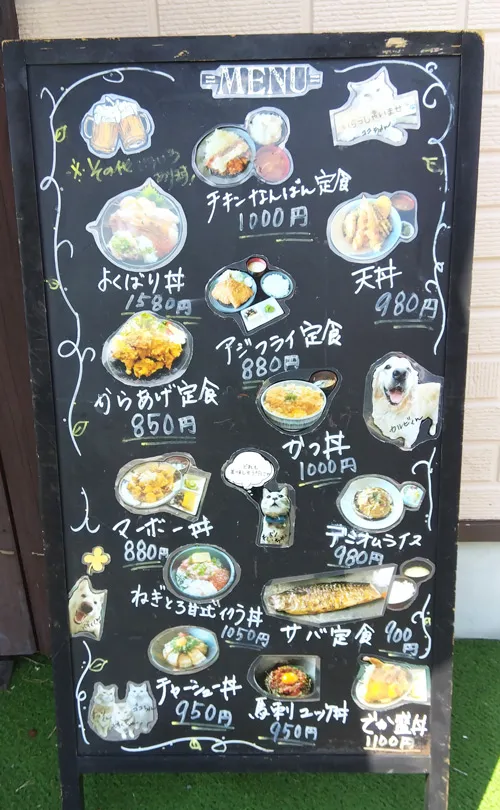 MENU
いらっしゃいませ
※その他
チキンなんばん定食
1000円
よくばり丼
1580円
天丼
980円
アジフライ定食
880円
からあげ定食
850円
カルビくん
かつ丼
1000円
マーボー丼
880円
デミオムライス
980円
ねぎとろ甘エビイクラ丼
1050円
サバ定食
900円
チャーシュー丼
950円
馬刺ユッケ丼
950円
でか盛丼
1100円